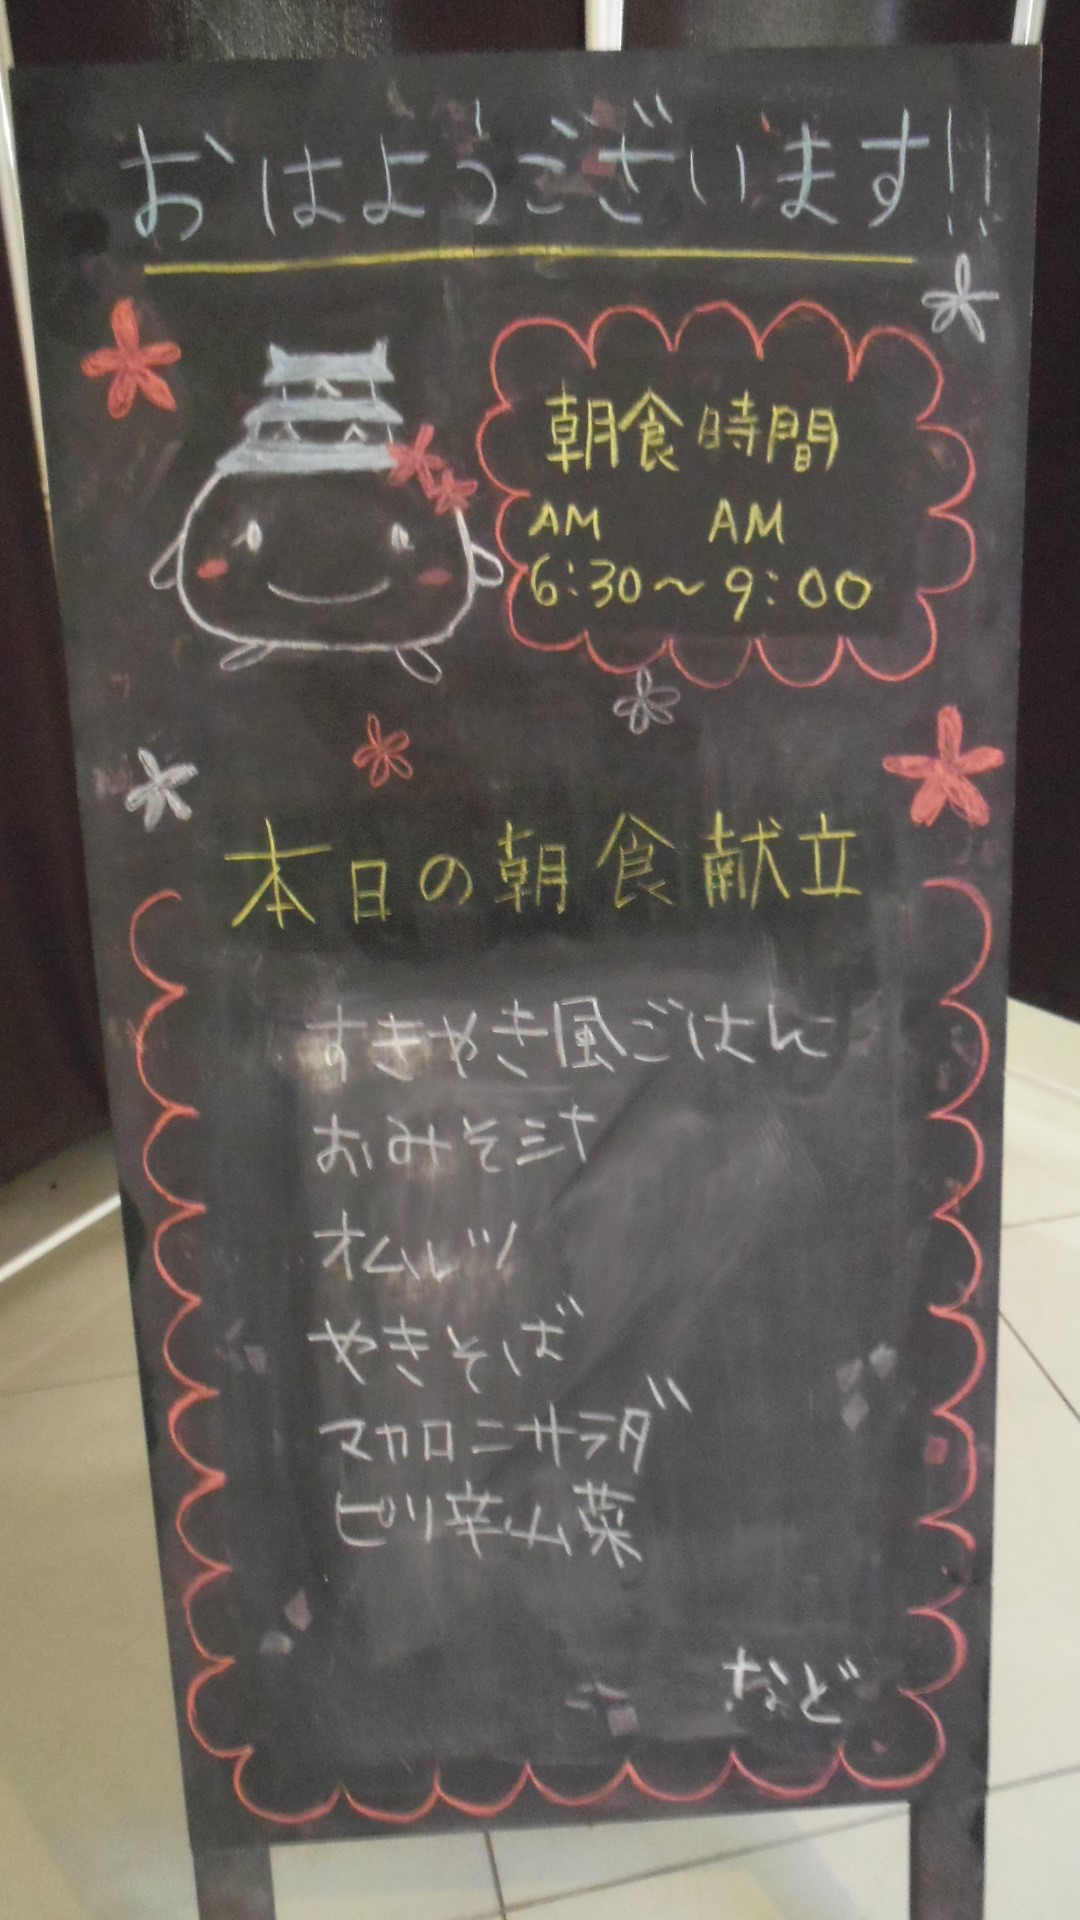 おはようございます!!
朝食時間
AM AM
6:30～9:00
本日の朝食献立
すきやき風ごはん
おみそ汁
オムレツ
やきそば
マカロニサラダ
ピリ辛山菜
など